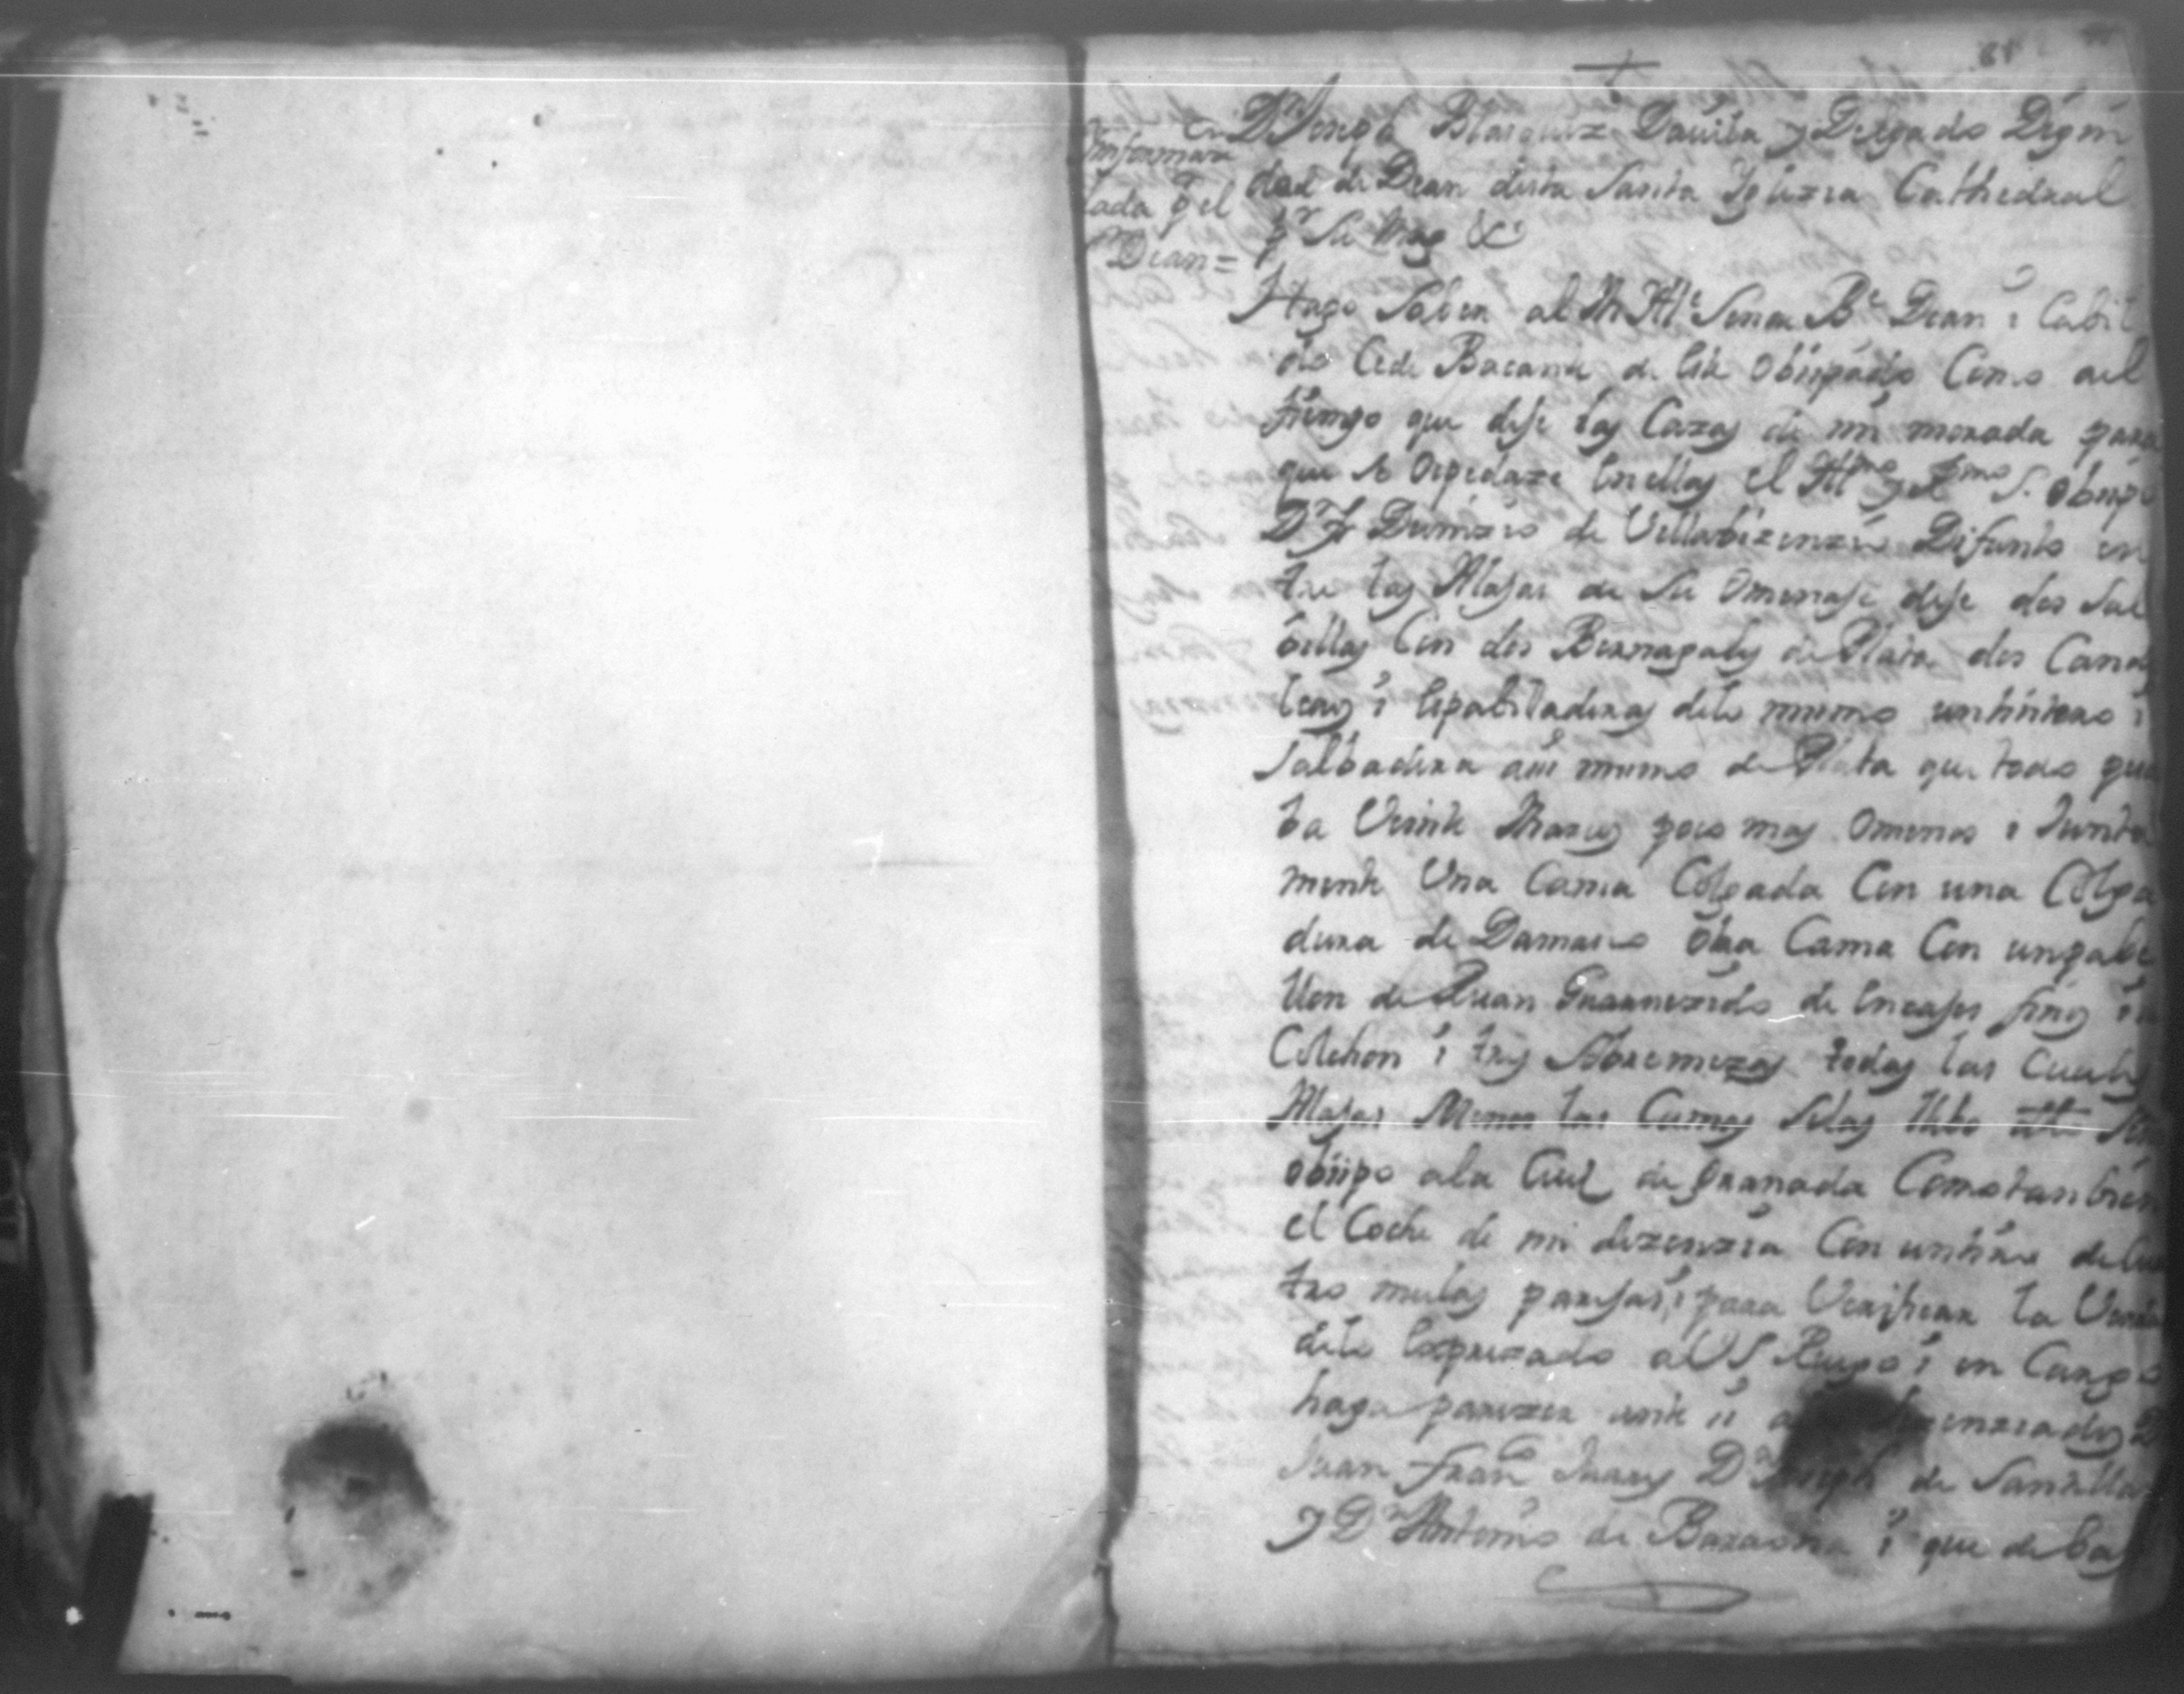 81
Informaz
lada q el
Sr Dean =
Dn Joseph Blasquez Dauila y Delgado Digni
dad de Dean desta Santa Iglezia Cathedral
pr Su Mag &c
Hago Saber al Señor Be Dean i Cabil
do Cede Bacante de este Obispado Como al
tiempo que deje las Cazas de mi morada para
que se ospedaze en ellas el Illmo y Rmo S. Obispo
Dn Fr Dionizio de Villabizenzio Difunto en
tre las Alajas de Su Omenaje deje dos Sal
billas Con dos Bernagales de Plata dos Cande
leros i Espabiladeras de lo mismo un tintero i
Salbadera asi mismo de Plata que todo
ba Veinte Marcos poco mas O menos i Junta
mente Una Cama Colgada Con una Colga
dura de Damasco otra Cama Con un pabe
llon de Ruan Guarnezido de encajes finos i
Colchon i tres Sobremezas todas las Cuales
Alajas Menos las Camas Se las llebo Sr
obispo a la Ciud de Granada Como tanbien
el Coche de mi dezenzia Con un tiro de Cua
tro mulas parejas, i para Verificar la Verdad
de lo Esprezado a V S Ruego i en Cargo
haga parezer ante si a lizenziados D
Juan Franco Juarez Dn Joseph de Santilla
y Dn Antonio de Baraona i que de ba